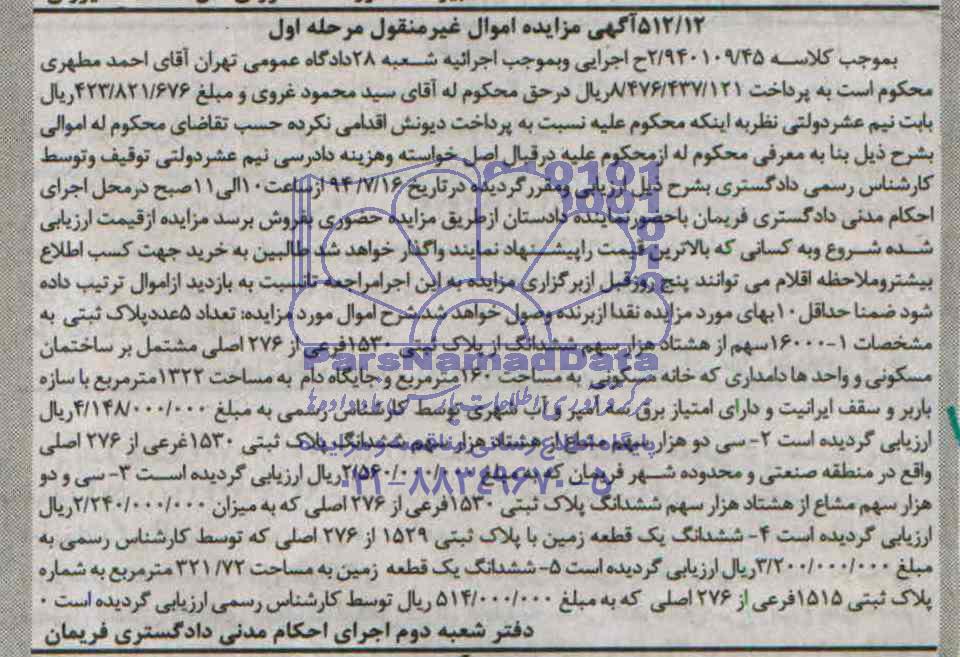 ۵۱۲/۱۲آگهی مزایده اموال غیرمنقول مرحله اول
بموجب کلاسه ۲/۹۴۰۱۰۹/۴۵ح اجرایی وبموجب اجرائیه شعبه ۲۸دادگاه عمومی تهران آقای احمد مطهری
محکوم است به پرداخت ۸/۴۷۶/۴۳۷/۱۲۱ریال درحق محکوم له آقای سید محمود غروی و مبلغ ۴۲۳/۸۲۱/۶۷۶ریال
بابت نیم عشردولتی نظربه اینکه محکوم علیه نسبت به پرداخت دیونش اقدامی نکرده حسب تقاضای محکوم له اموالی
بشرح ذیل بنا به معرفی محکوم له ازمحکوم علیه درقبال اصل خواسته وهزینه دادرسی نیم عشردولتی توقیف وتوسط
کارشناس رسمی دادگستری بشرح ذیل ارزیابی ومقررگردیده درتاریخ ۹۴/۷/۱۶ ازساعت۱۰الی۱۱صبح درمحل اجرای
احکام مدنی دادگستری فریمان باحضورنماینده دادستان ازطریق مزایده حضوری بفروش برسد مزایده ازقیمت ارزیابی
شده شروع وبه کسانی که بالاترین قیمت راپیشنهاد نمایند واگذار خواهد شد طالبین به خرید جهت کسب اطلاع
بیشتروملاحظه اقلام می توانند پنج روزقبل ازبرگزاری مزایده به این اجرامراجعه تانسبت به بازدید ازاموال ترتیب داده
شود ضمنا حداقل۱۰بهای مورد مزایده نقدا ازبرنده وصول خواهد شد شرح اموال مورد مزایده: تعداد ۵عددپلاک ثبتی به
مشخصات ۱-۱۶۰۰۰سهم از هشتاد هزار سهم ششدانگ از پلاک ثبتی ۱۵۳۰فرعی از ۲۷۶ اصلی مشتمل بر ساختمان
مسکونی و واحد ها دامداری که خانه مسکونی به مساحت ۱۶۰مترمربع و جایگاه دام به مساحت ۱۳۲۲مترمربع با سازه
باربر و سقف ایرانیت و دارای امتیاز برق سه آمپر و آب شهری توسط کارشناس رسمی به مبلغ ۴/۱۴۸/۰۰۰/۰۰۰ریال
ارزیابی گردیده است ۲- سی دو هزار سهم مشاع از هشتاد هزار سهم ششدانگ پلاک ثبتی ۱۵۳۰غرعی از ۲۷۶ اصلی
واقع در منطقه صنعتی و محدوده شهر فریمان که به مبلغ ۲/۵۶۰/۰۰۰/۰۰۰ریال ارزیابی گردیده است ۳- سی و دو
هزار سهم مشاع از هشتاد هزار سهم ششدانگ پلاک ثبتی ۱۵۳۰فرعی از ۲۷۶ اصلی که به میزان ۲/۲۴۰/۰۰۰/۰۰۰ریال
ارزیابی گردیده است ۴- ششدانگ یک قطعه زمین با پلاک ثبتی ۱۵۲۹ از ۲۷۶ اصلی که توسط کارشناس رسمی به
مبلغ ۳/۲۰۰/۰۰۰/۰۰۰ریال ارزیابی گردیده است ۵- ششدانگ یک قطعه زمین به مساحت ۳۲۱/۷۲ مترمربع به شماره
پلاک ثبتی ۱۵۱۵فرعی از ۲۷۶ اصلی که به مبلغ ۵۱۴/۰۰۰/۰۰۰ ریال توسط کارشناس رسمی ارزیابی گردیده است ۰
دفتر شعبه دوم اجرای احکام مدنی دادگستری فریمان
ParsNamadData
مرکز فرآوری اطلاعات پارس نماد داده ها
پایگاه اطلاع رسانی مناقصه و مزایده
۰۲۱-۸۸۳۴۹۶۷۰-۵